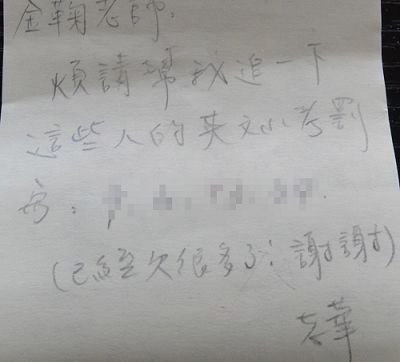 金鞠老師:
煩請幫我追一下
這些人的英文小考罰
寫:
(已經欠很多了!謝謝)
志華